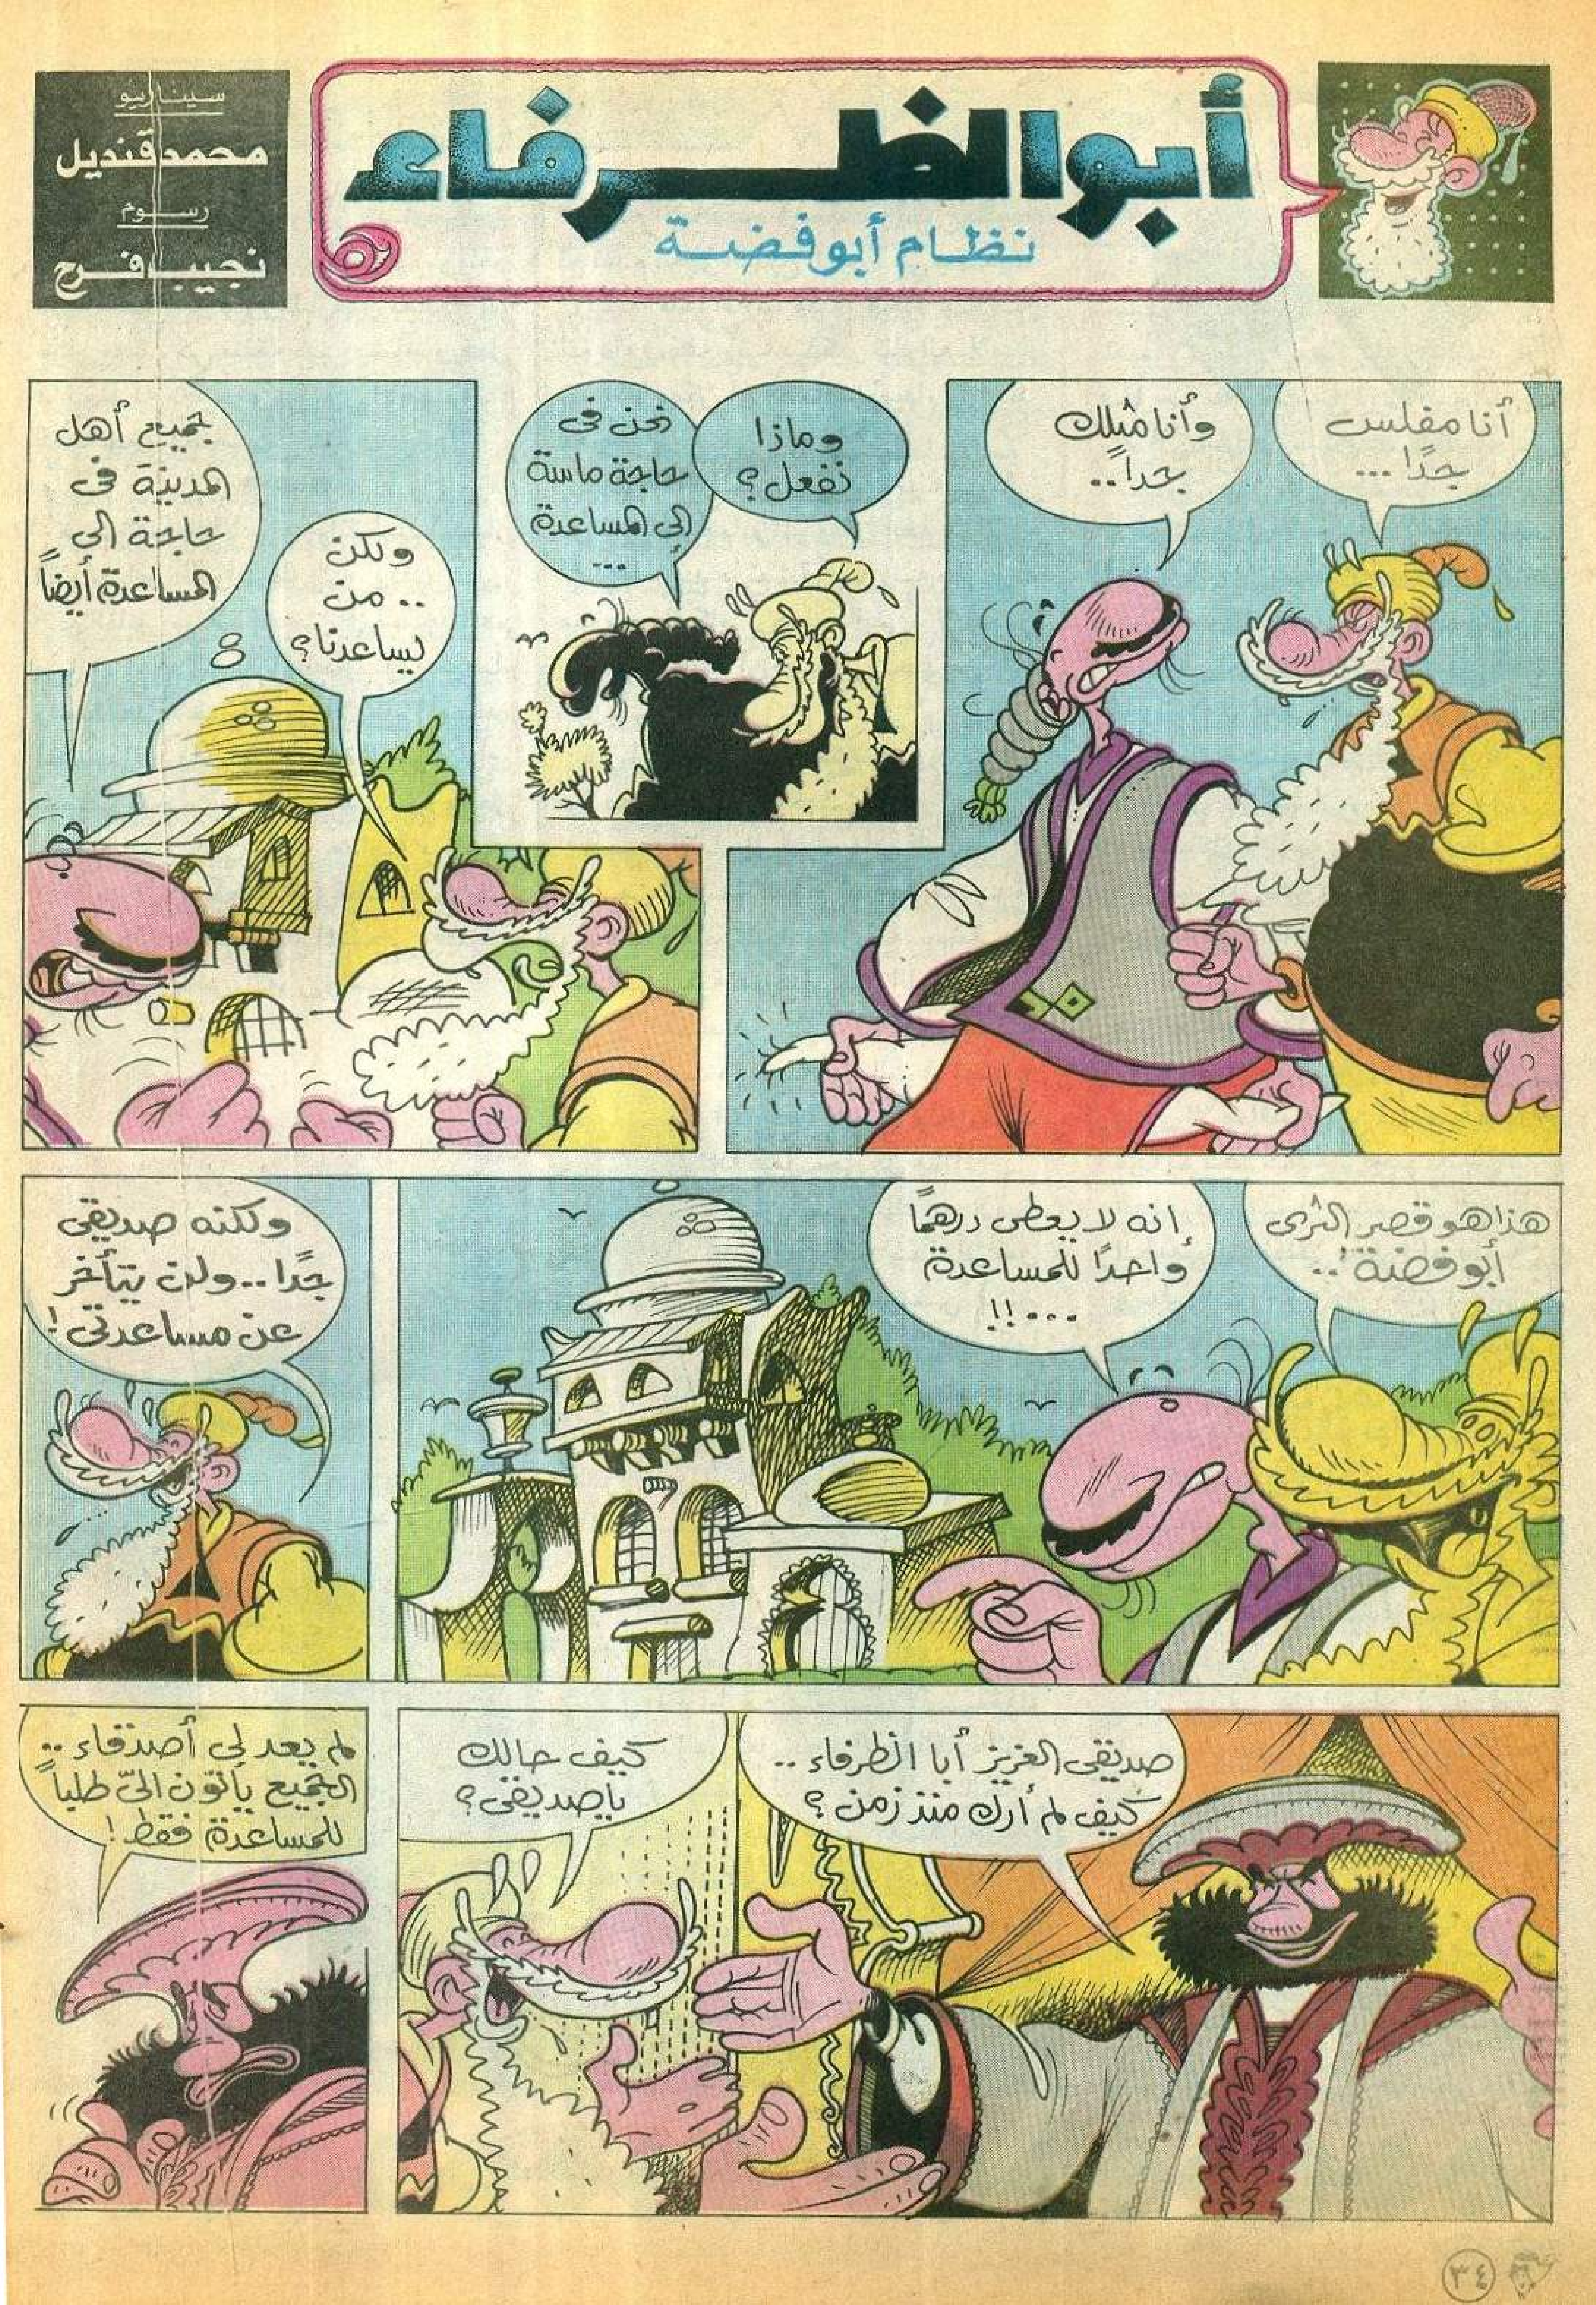 أبو الظرفاء
نظام أبو فضة
سيناريو
محمد قنديل
رسوم
نجيب فرج
أنا مفلس
جدًا ...
وأنا مثلك
جداً ..
وماذا
نفعل؟
نحن في
حاجة ماسة
إلى المساعدة
...
ولكن
.. من
يساعدنا؟
جميع أهل
المدينة في
حاجة إلى
المساعدة أيضاً
هذا هو قصر الثرى
أبو فضة! ..
إنه لا يعطى درهمًا
واحدًا للمساعدة
...!!
ولكنه صديقى
جدًا .. ولن يتأخر
عن مساعدتى!
صديقى العزيز أبا الظرفاء ..
كيف لم أرك منذ زمن؟
كيف حالك
ياصديقى؟
لم يعد لى أصدقاء ..
الجميع يأتون الىّ طلباً
للمساعدة فقط!
٣٤